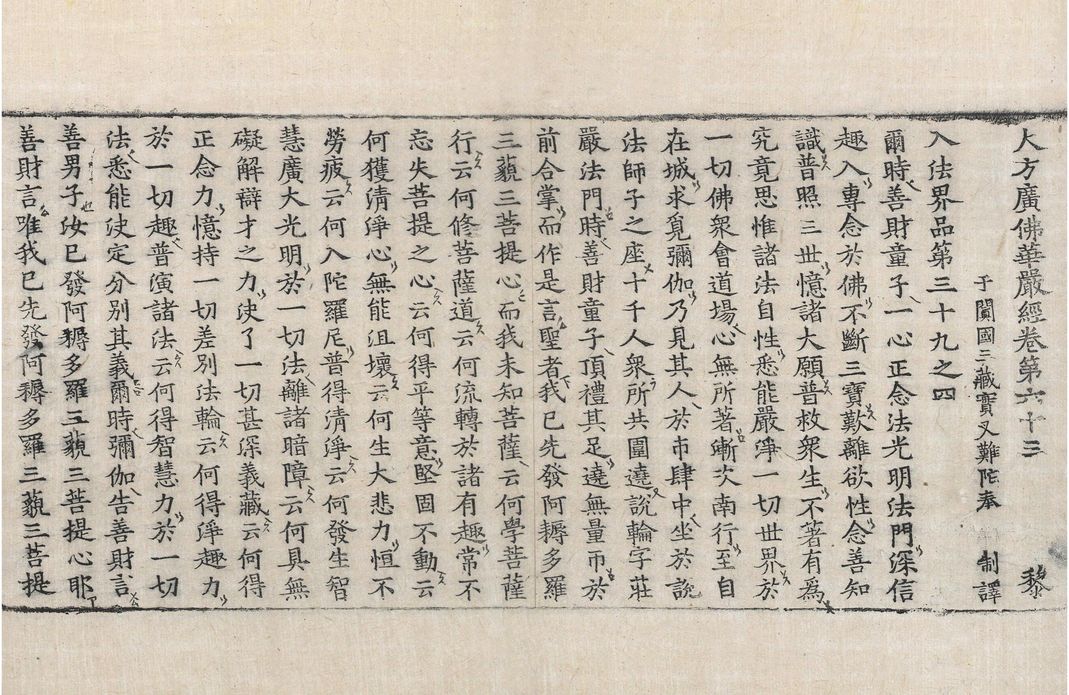 大方廣佛華嚴經卷第六十三 黎
于闐國三藏實叉難陁奉 制譯
入法界品第三十九之四
爾時善財童子一心正念法光明法門深信
趣入專念於佛不斷三寶歎離欲性念善知
識普照三世憶諸大願普救衆生不著有爲
究竟思惟諸法自性悉能嚴淨一切世界於
一切佛衆會道場心無所著漸次南行至自
在城求覓彌伽乃見其人於市肆中坐於說
法師子之座十千人衆所共圍遶說輪字莊
嚴法門時善財童子頂禮其足遶無量帀於
前合掌而作是言聖者我已先發阿耨多羅
三藐三菩提心而我未知菩薩云何學菩薩
行云何修菩薩道云何流轉於諸有趣常不
忘失菩提之心云何得平等意堅固不動云
何獲清淨心無能沮壞云何生大悲力恒不
勞疲云何入陁羅尼普得清淨云何發生智
慧廣大光明於一切法離諸暗障云何具無
礙解辯才之力決了一切甚深義藏云何得
正念力憶持一切差別法輪云何得淨趣力
於一切趣普演諸法云何得智慧力於一切
法悉能決定分別其義爾時彌伽告善財言
善男子汝已發阿耨多羅三藐三菩提心耶
善財言唯我已先發阿耨多羅三藐三菩提